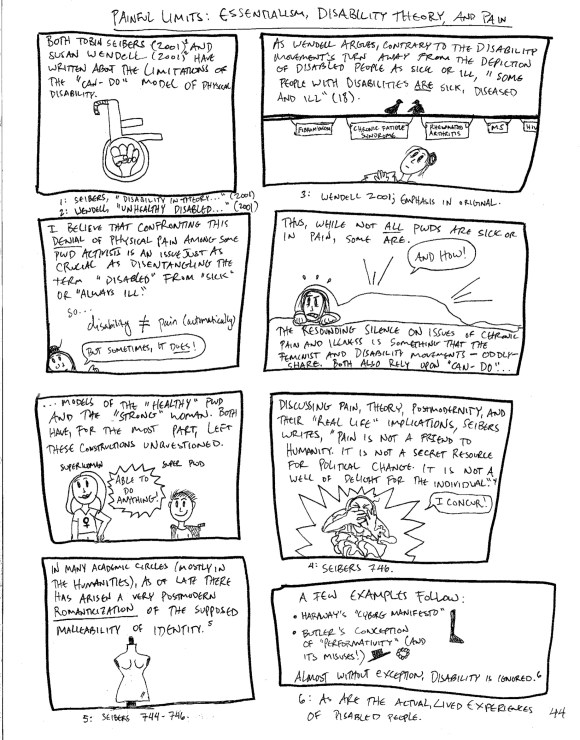 PAINFUL LIMITS: ESSENTIALISM, DISABILITY THEORY, AND PAIN
BOTH TOBIN SEIBERS (2001)¹ AND
SUSAN WENDELL (2001)² HAVE
WRITTEN ABOUT THE LIMITATIONS OF
THE "CAN-DO" MODEL OF PHYSICAL
DISABILITY.
1: SEIBERS, "DISABILITY IN THEORY..." (2001)
2: WENDELL, "UNHEALTHY DISABLED..." (2001)
AS WENDELL ARGUES, CONTRARY TO THE DISABILITY
MOVEMENT'S TURN AWAY FROM THE DEPICTION
OF DISABLED PEOPLE AS SICK OR ILL, "SOME
PEOPLE WITH DISABILITIES ARE SICK, DISEASED
AND ILL" (18).
FIBROMYALGIA
CHRONIC FATIGUE
SYNDROME
RHEUMATOID
ARTHRITIS
MS
HIV
3: WENDELL 2001; EMPHASIS IN ORIGINAL.
I BELIEVE THAT CONFRONTING THIS
DENIAL OF PHYSICAL PAIN AMONG SOME
PWD ACTIVISTS IS AN ISSUE JUST AS
CRUCIAL AS DISENTANGLING THE
TERM "DISABLED" FROM "SICK"
OR "ALWAYS ILL."
SO...
disability ≠ pain (automatically)
BUT SOMETIMES, IT DOES!
THUS, WHILE NOT ALL PWDS ARE SICK OR
IN PAIN, SOME ARE.
AND HOW!
THE RESOUNDING SILENCE ON ISSUES OF CHRONIC
PAIN AND ILLNESS IS SOMETHING THAT THE
FEMINIST AND DISABILITY MOVEMENTS – ODDLY –
SHARE. BOTH ALSO RELY UPON "CAN-DO"...
...MODELS OF THE "HEALTHY" PWD
AND THE "STRONG" WOMAN. BOTH
HAVE, FOR THE MOST PART, LEFT
THESE CONSTRUCTIONS UNQUESTIONED.
SUPERWOMAN
SUPER PWD
ABLE TO
DO
ANYTHING!
DISCUSSING PAIN, THEORY, POSTMODERNITY, AND
THEIR "REAL LIFE" IMPLICATIONS, SEIBERS
WRITES, "PAIN IS NOT A FRIEND TO
HUMANITY. IT IS NOT A SECRET RESOURCE
FOR POLITICAL CHANGE. IT IS NOT A
WELL OF DELIGHT FOR THE INDIVIDUAL"⁴
I CONCUR!
4: SEIBERS 746.
IN MANY ACADEMIC CIRCLES (MOSTLY IN
THE HUMANITIES), AS OF LATE THERE
HAS ARISEN A VERY POSTMODERN
ROMANTICIZATION OF THE SUPPOSED
MALLEABILITY OF IDENTITY.⁵
5: SEIBERS 744-746.
A FEW EXAMPLES FOLLOW:
• HARAWAY'S "CYBORG MANIFESTO"
• BUTLER'S CONCEPTION
OF "PERFORMATIVITY" (AND
ITS MISUSES!)
ALMOST WITHOUT EXCEPTION, DISABILITY IS IGNORED.⁶
6: AS ARE THE ACTUAL, LIVED EXPERIENCES
OF DISABLED PEOPLE.
44